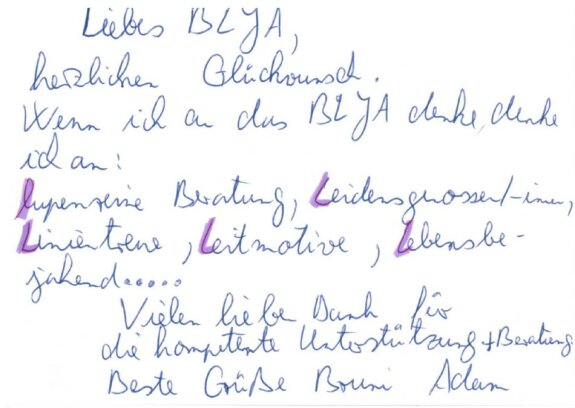 Liebes BLJA,
herzlichen Glückwunsch.
Wenn ich an das BLJA denke, denke
ich an:
lupenreine Beratung, Leidensgenossen/-innen,
Linientreue, Leitmotive, Lebensbe-
jahend.....
Vielen liebe Dank für
die kompetente Unterstützung + Beratung
Beste Grüße Bruni Adam